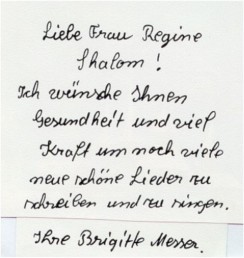 Liebe Frau Regine
Shalom !
Ich wünsche Ihnen
Gesundheit und viel
Kraft um noch viele
neue schöne Lieder zu
schreiben und zu singen.
Ihre Brigitte Messer.